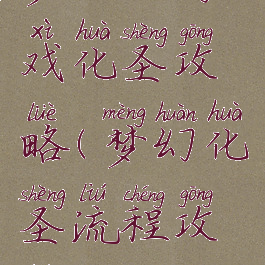 xì huà shèng gōng
戏化圣攻
lüè mèng huàn huà
略(梦幻化
shèng liú chéng gōng
圣流程攻